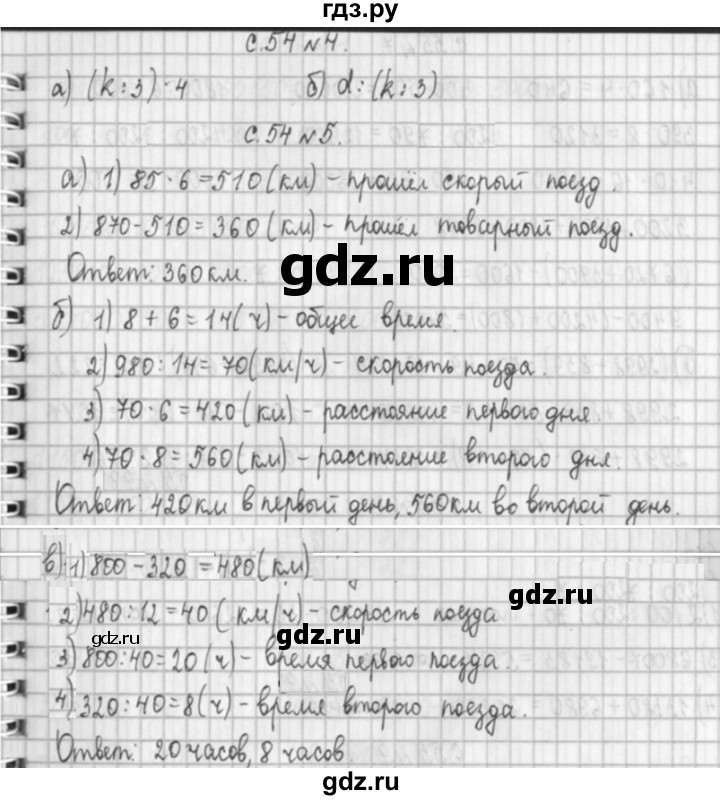 гдз.ру
с.54 №4.
а) (k:3)·4 б) d:(k:3)
с.54 №5.
а) 1) 85·6=510(км) – прошёл скорый поезд.
2) 870-510=360(км) – прошёл товарный поезд.
Ответ: 360км.
gdz.ru
б) 1) 8+6=14(ч) – общее время.
2) 980:14=70(км/ч) – скорость поезда.
3) 70·6=420(км) – расстояние первого дня
4) 70·8=560(км) – расстояние второго дня.
Ответ: 420км в первый день, 560км во второй день.
в) 1) 800-320=480(км)
2) 480:12=40(км/ч) – скорость поезда
gdz.ru gdz.ru
3) 800:40=20(ч) – время первого поезда.
4) 320:40=8(ч) – время второго поезда.
Ответ: 20 часов, 8 часов.
gdz.ru